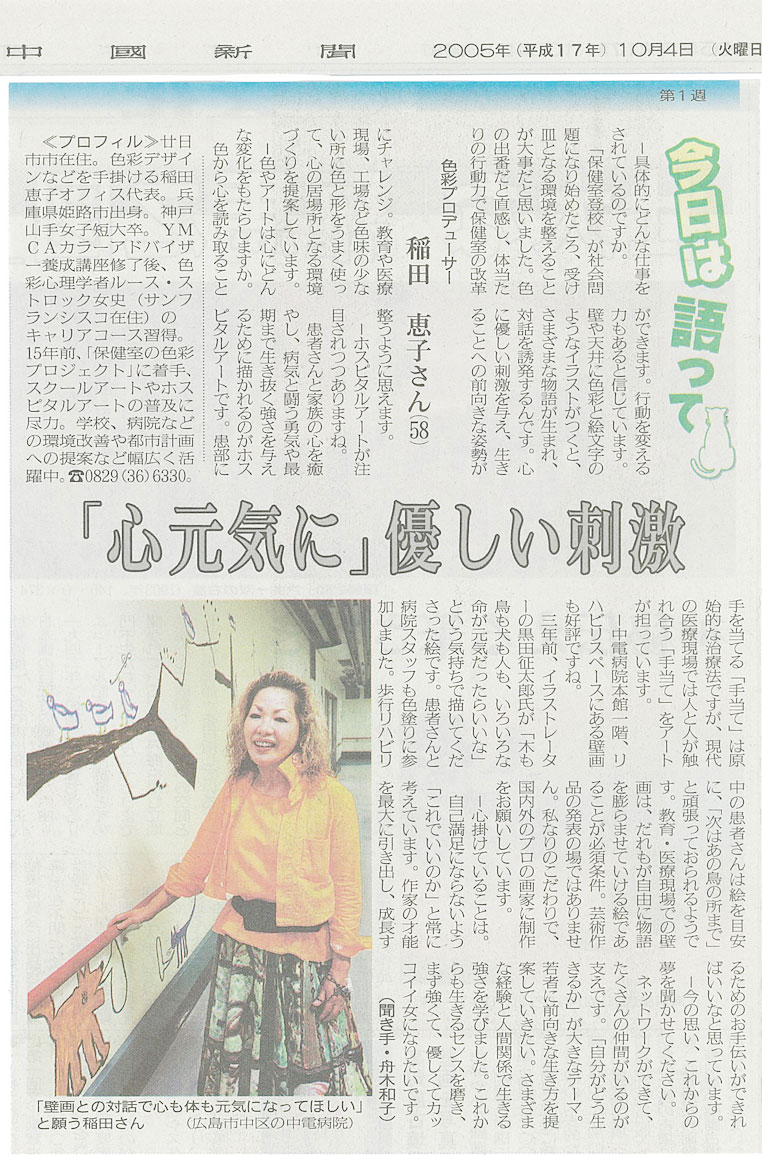 中國新聞
2005年(平成17年)10月4日 (火曜日
第1週
今日は語って
色彩プロデューサー
稲田 恵子さん(58)
―具体的にどんな仕事を
されているのですか。
「保健室登校」が社会問
題になり始めたころ、受け
皿となる環境を整えること
が大事だと思いました。色
の出番だと直感し、体当た
りの行動力で保健室の改革
にチャレンジ。教育や医療
現場、工場など色味の少な
い所に色と形をうまく使っ
て、心の居場所となる環境
づくりを提案しています。
―色やアートは心にどん
な変化をもたらしますか。
色から心を読み取ること
ができます。行動を変える
力もあると信じています。
壁や天井に色彩と絵文字の
ようなイラストがつくと、
さまざまな物語が生まれ、
対話を誘発するんです。心
に優しい刺激を与え、生き
ることへの前向きな姿勢が
整うように思えます。
―ホスピタルアートが注
目されつつありますね。
患者さんと家族の心を癒
やし、病気と闘う勇気や最
期まで生き抜く強さを与え
るために描かれるのがホス
ピタルアートです。患部に
≪プロフィル≫廿日
市市在住。色彩デザイ
ンなどを手掛ける稲田
恵子オフィス代表。兵
庫県姫路市出身。神戸
山手女子短大卒。YM
CAカラーアドバイザ
ー養成講座修了後、色
彩心理学者ルース・ス
トロック女史(サンフ
ランシスコ在住)の
キャリアコース習得。
15年前、「保健室の色彩
プロジェクト」に着手、
スクールアートやホス
ピタルアートの普及に
尽力。学校、病院など
の環境改善や都市計画
への提案など幅広く活
躍中。☎0829(36)6330。
「心元気に」優しい刺激
手を当てる「手当て」は原
始的な治療法ですが、現代
の医療現場では人と人が触
れ合う「手当て」をアート
が担っています。
―中電病院本館一階、リ
ハビリスペースにある壁画
も好評ですね。
三年前、イラストレータ
ーの黒田征太郎氏が「木も
鳥も犬も人も、いろいろな
命が元気だったらいいな」
という気持ちで描いてくだ
さった絵です。患者さんと
病院スタッフも色塗りに参
加しました。歩行リハビリ
中の患者さんは絵を目安
に、「次はあの鳥の所まで」
と頑張っておられるようで
す。教育・医療現場での壁
画は、だれもが自由に物語
を膨らませていける絵であ
ることが必須条件。芸術作
品の発表の場ではありませ
ん。私なりのこだわりで、
国内外のプロの画家に制作
をお願いしています。
―心掛けていることは。
自己満足にならないよう
「これでいいのか」と常に
考えています。作家の才能
を最大に引き出し、成長す
るためのお手伝いができれ
ばいいなと思っています。
―今の思い、これからの
夢を聞かせてください。
ネットワークができて、
たくさんの仲間がいるのが
支えです。「自分がどう生
きるか」が大きなテーマ。
若者に前向きな生き方を提
案していきたい。さまざま
な経験と人間関係で生きる
強さを学びました。これか
らも生きるセンスを磨き、
まず強くて、優しくてカッ
コイイ女になりたいです。
(聞き手・舟木和子)
「壁画との対話で心も体も元気になってほしい」
と願う稲田さん (広島市中区の中電病院)